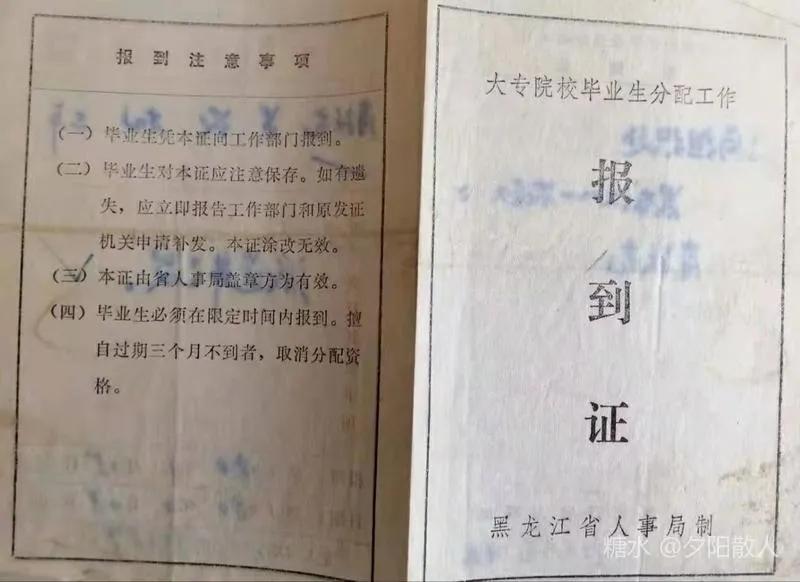 报到注意事项
(一)毕业生凭本证向工作部门报到。
(二)毕业生对本证应注意保存。如有遗
失，应立即报告工作部门和原发证
机关申请补发。本证涂改无效。
(三)本证由省人事局盖章方为有效。
(四)毕业生必须在限定时间内报到。擅
自过期三个月不到者，取消分配资
格。
大专院校毕业生分配工作
报
到
证
黑龙江省人事局制
糖水 @夕阳散人